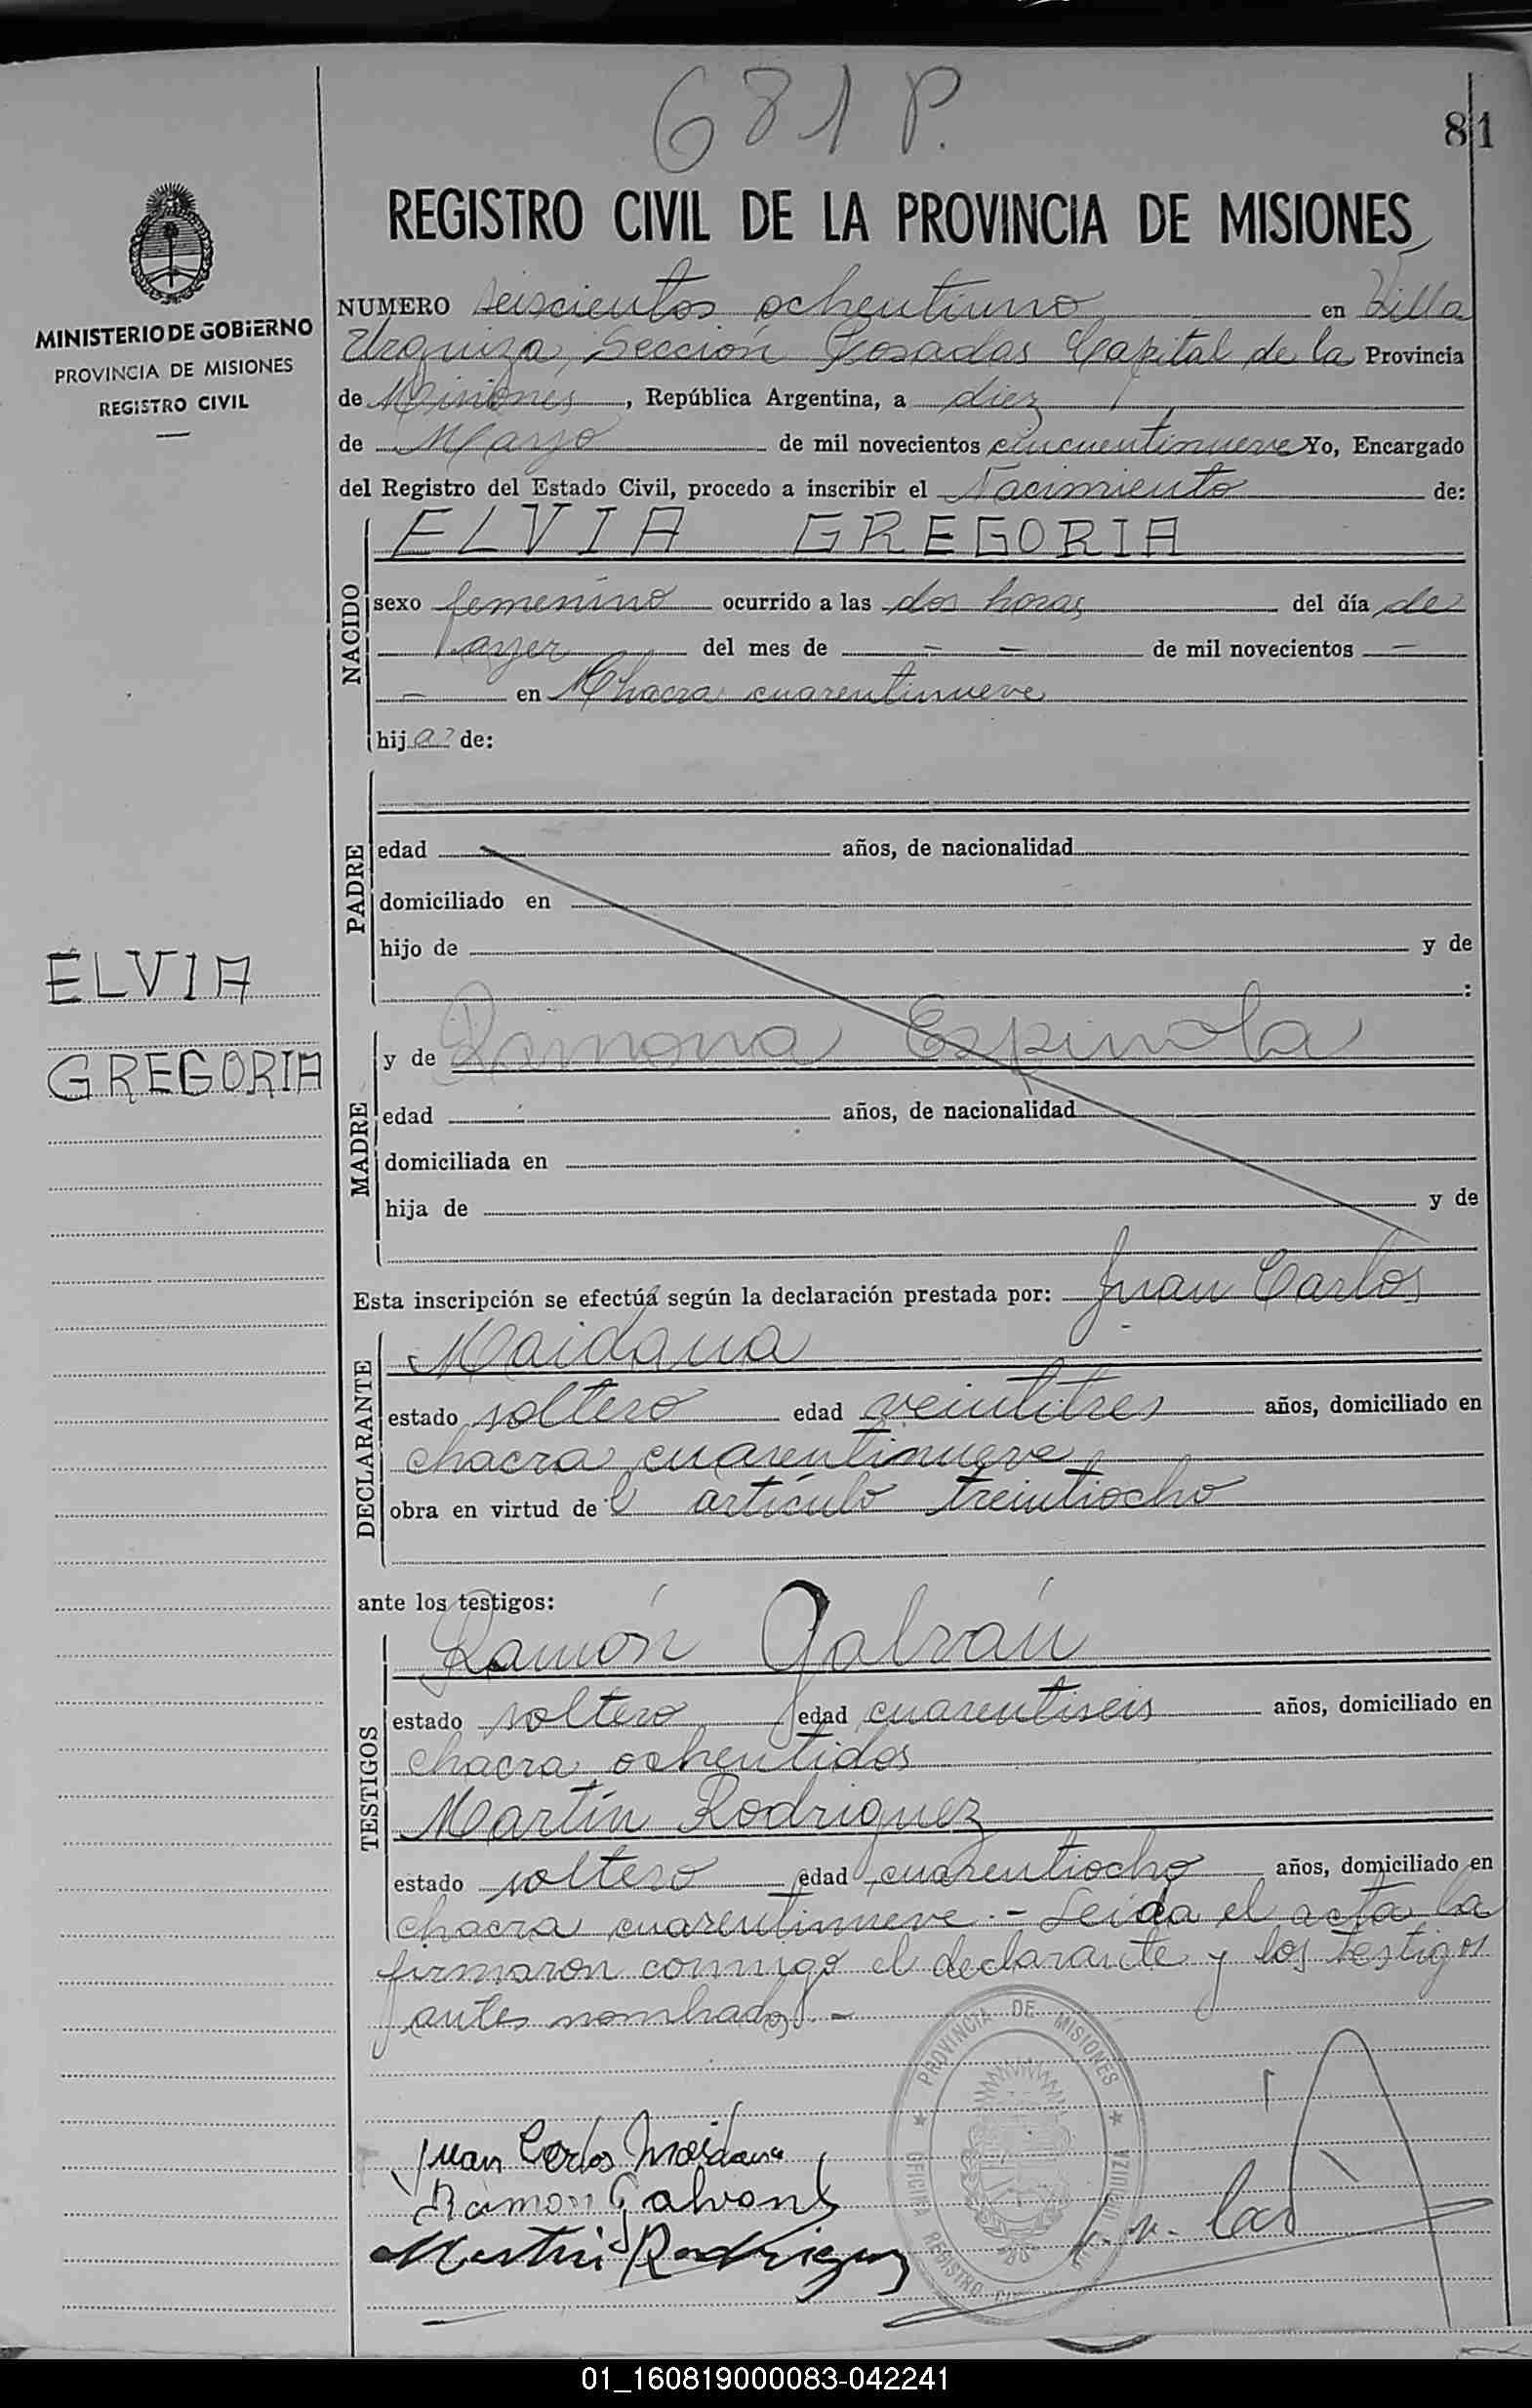 681 P.
81
REGISTRO CIVIL DE LA PROVINCIA DE MISIONES
MINISTERIO DE GOBIERNO
PROVINCIA DE MISIONES
REGISTRO CIVIL
NUMERO seiscientos ochentiuno en Villa
Urquiza, Sección Posadas Capital de la Provincia
de Misiones, República Argentina, a diez
de Marzo de mil novecientos cincuentinueve Yo, Encargado
del Registro del Estado Civil, procedo a inscribir el Nacimiento de:
NACIDO
ELVIA GREGORIA
sexo femenino ocurrido a las dos horas del día de
ayer del mes de — — de mil novecientos —
— en Chacra cuarentinueve
hija de:
PADRE
edad años, de nacionalidad
domiciliado en
hijo de y de
:
ELVIA
GREGORIA
MADRE
y de Ramona Espinola
edad años, de nacionalidad
domiciliada en
hija de y de
Esta inscripción se efectúa según la declaración prestada por: Juan Carlos
DECLARANTE
Maidana
estado soltero edad veintitres años, domiciliado en
chacra cuarentinueve
obra en virtud del artículo treintiocho
ante los testigos:
TESTIGOS
Ramón Galván
estado soltero edad cuarentiseis años, domiciliado en
chacra ochentidos
Martín Rodriguez
estado soltero edad cuarentiocho años, domiciliado en
chacra cuarentinueve.- Leída el acta la
firmaron conmigo el declarante y los testigos
antes nombrados.-
PROVINCIA DE MISIONES
OFICINA REGISTRO
URQUIZA
Juan Carlos Maidana
Ramon Galvan
Martin Rodriguez
01_160819000083-042241